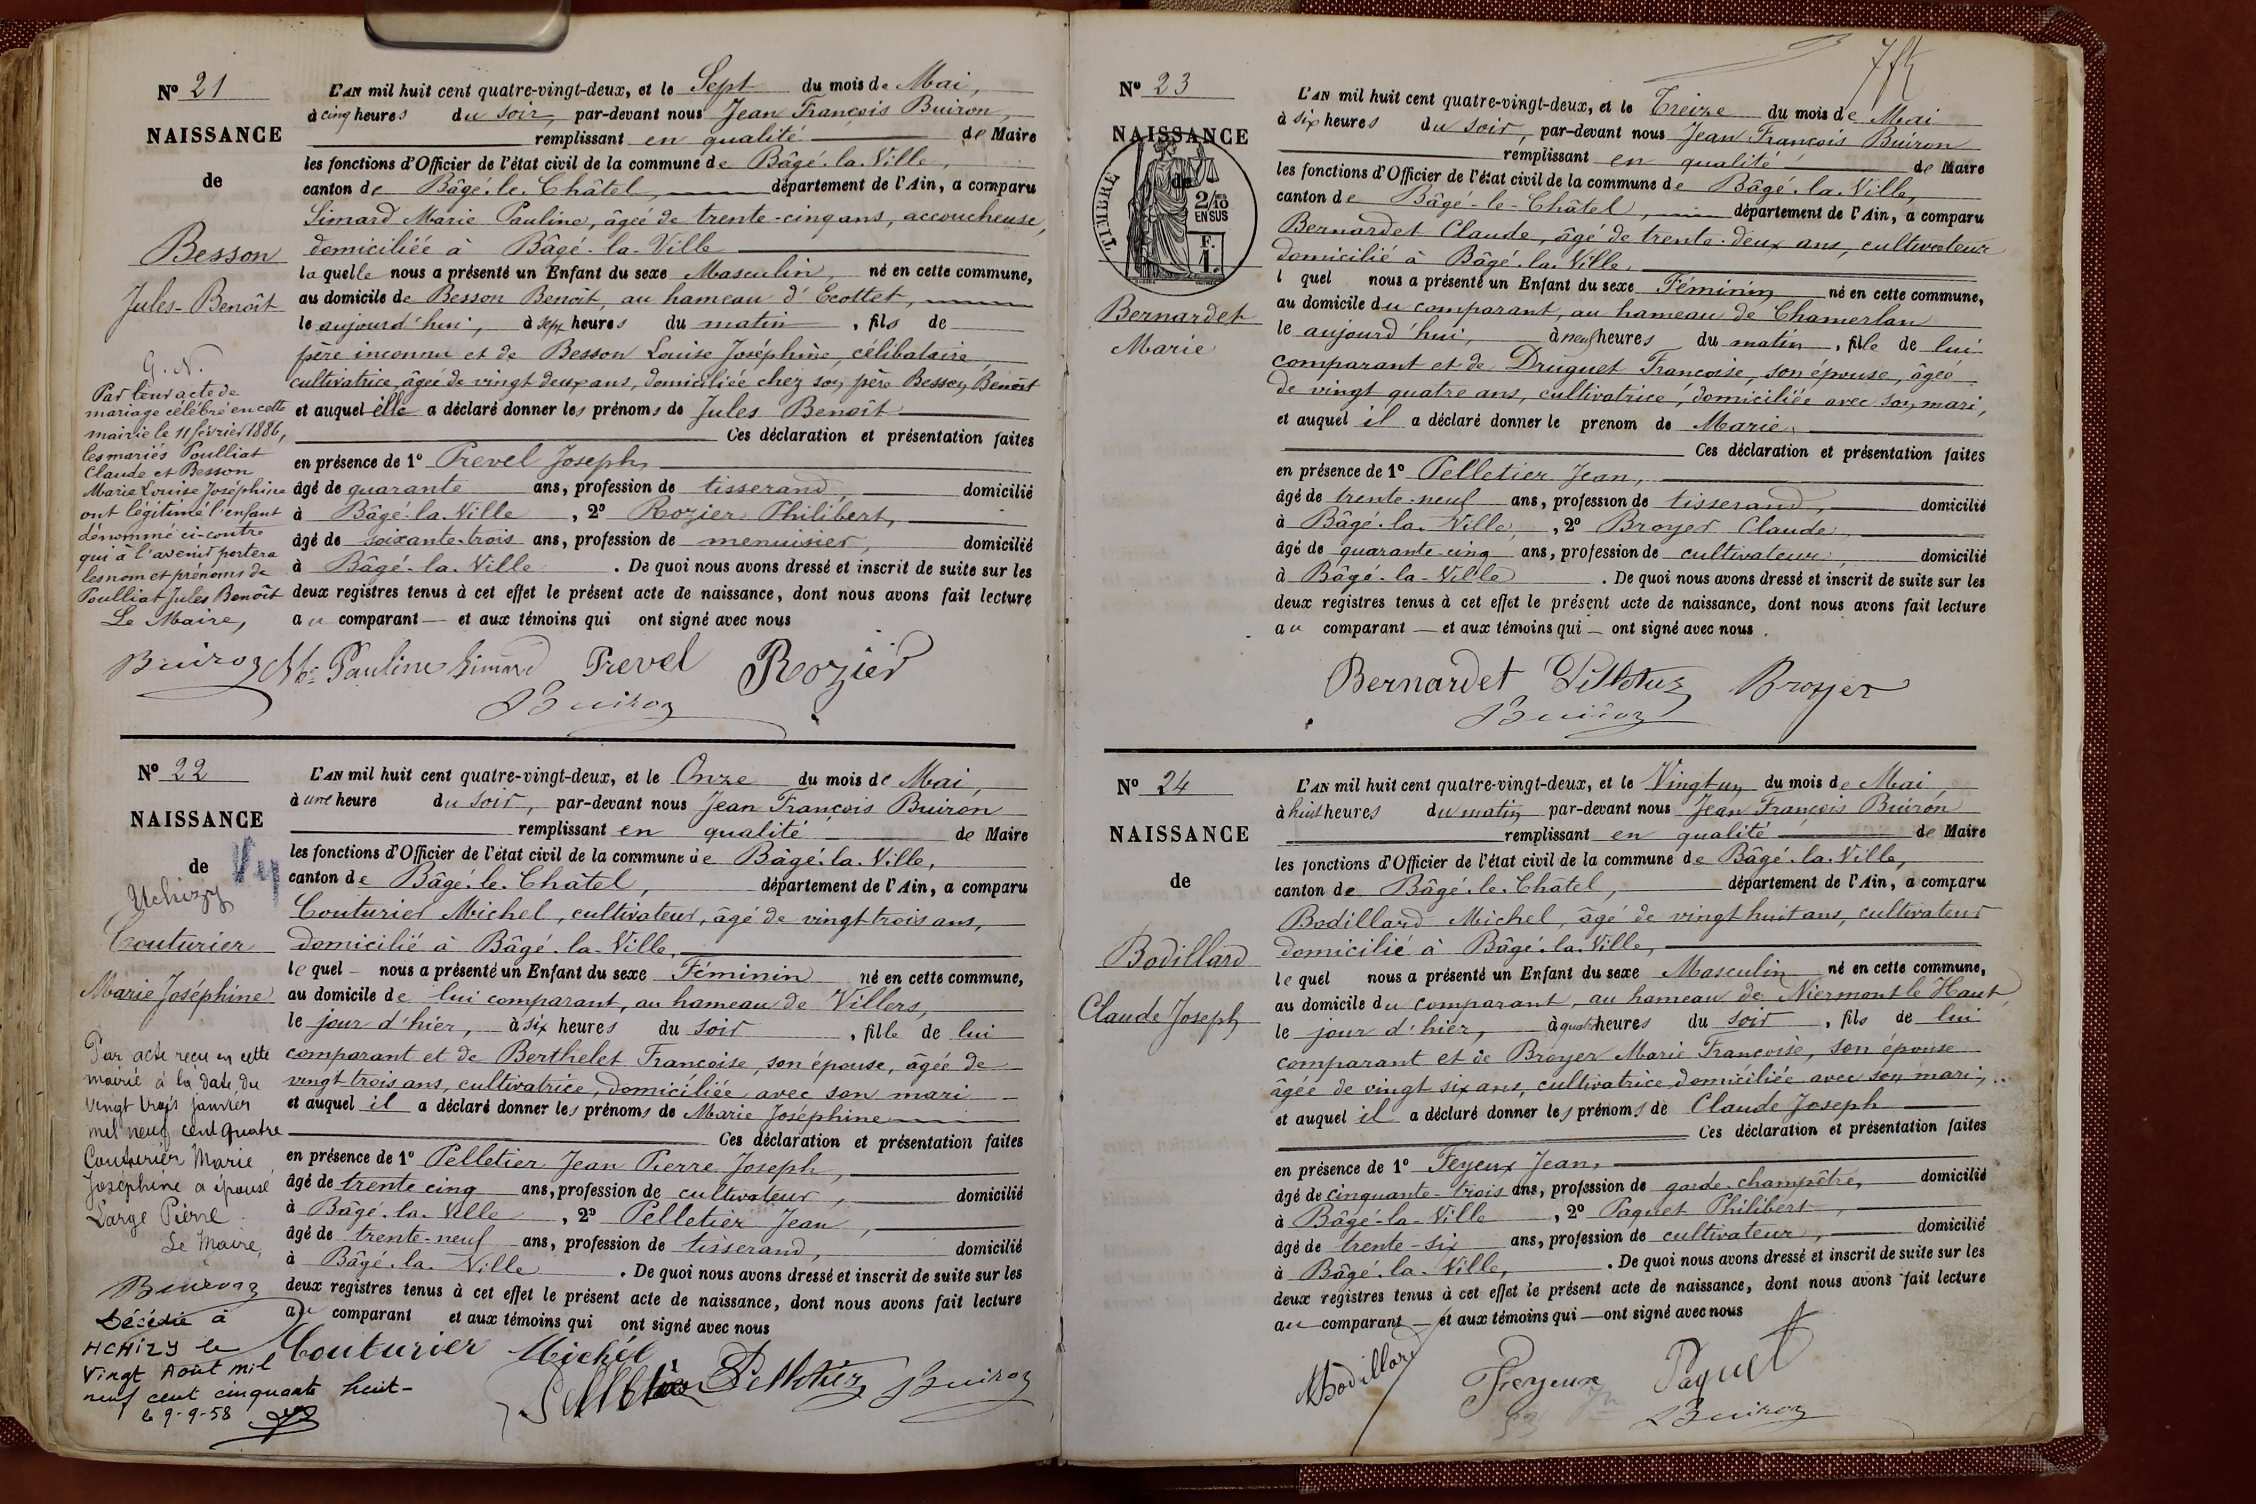 N° 21
NAISSANCE
de
Besson
Jules-Benoît
G. N.
Par leur acte de
mariage célébré en cette
mairie le 11 février 1886,
les mariés Poulliat
Claude et Besson
Marie Louise Joséphine
ont légitimé l'enfant
dénommé ci-contre
qui à l'avenir portera
les nom et prénoms de
Poulliat Jules Benoît
Le Maire,
Buiron
L'AN mil huit cent quatre-vingt-deux, et le Sept du mois de Mai,
à cinq heures du soir, par-devant nous Jean François Buiron,
remplissant en qualité de Maire
les fonctions d'Officier de l'état civil de la commune de Bâgé-la-Ville,
canton de Bâgé-le-Châtel, département de l'Ain, a comparu
Simard Marie Pauline, âgée de trente-cinq ans, accoucheuse,
domiciliée à Bâgé-la-Ville
laquelle nous a présenté un Enfant du sexe Masculin, né en cette commune,
au domicile de Besson Benoît, au hameau d'Ecottet,
le aujourd'hui, à sept heures du matin, fils de
père inconnu et de Besson Louise Joséphine, célibataire
cultivatrice, âgée de vingt deux ans, domiciliée chez son père Besson Benoît
et auquel elle a déclaré donner les prénoms de Jules Benoît
Ces déclaration et présentation faites
en présence de 1° Prevel Joseph,
âgé de quarante ans, profession de tisserand, domicilié
à Bâgé-la-Ville, 2° Rozier Philibert,
âgé de soixante-trois ans, profession de menuisier, domicilié
à Bâgé-la-Ville. De quoi nous avons dressé et inscrit de suite sur les
deux registres tenus à cet effet le présent acte de naissance, dont nous avons fait lecture
au comparant — et aux témoins qui ont signé avec nous
Mie Pauline Simard Prevel Rozier
Buiron
N° 22
NAISSANCE
de
Uchizy
Couturier
Marie Joséphine
Par acte reçu en cette
mairie à la date du
vingt trois janvier
mil neuf cent quatre
Couturier Marie
Joséphine a épousé
Large Pierre
Le Maire,
Buiron
Décédée à
UCHIZY le
Vingt Août mil
neuf cent cinquante huit-
le 9-9-58
L'AN mil huit cent quatre-vingt-deux, et le Onze du mois de Mai,
à une heure du soir, par-devant nous Jean François Buiron
remplissant en qualité de Maire
les fonctions d'Officier de l'état civil de la commune de Bâgé-la-Ville,
canton de Bâgé-le-Châtel, département de l'Ain, a comparu
Couturier Michel, cultivateur, âgé de vingt trois ans,
domicilié à Bâgé-la-Ville,
lequel — nous a présenté un Enfant du sexe Féminin né en cette commune,
au domicile de lui comparant, au hameau de Villers,
le jour d'hier, à six heures du soir, fille de lui
comparant et de Berthelet Françoise, son épouse, âgée de
vingt trois ans, cultivatrice, domiciliée avec son mari
et auquel il a déclaré donner les prénoms de Marie Joséphine
Ces déclaration et présentation faites
en présence de 1° Pelletier Jean Pierre Joseph,
âgé de trente cinq ans, profession de cultivateur, domicilié
à Bâgé-la-Ville, 2° Pelletier Jean,
âgé de trente-neuf ans, profession de tisserand, domicilié
à Bâgé-la-Ville. De quoi nous avons dressé et inscrit de suite sur les
deux registres tenus à cet effet le présent acte de naissance, dont nous avons fait lecture
au comparant et aux témoins qui ont signé avec nous
Couturier Michel
Pelletier Pelletier Buiron
N° 23
NAISSANCE
de
TIMBRE
2/10
EN SUS
F.
1.
Bernardet
Marie
L'AN mil huit cent quatre-vingt-deux, et le Treize du mois de Mai
à six heures du soir, par-devant nous Jean François Buiron
remplissant en qualité de Maire
les fonctions d'Officier de l'état civil de la commune de Bâgé-la-Ville,
canton de Bâgé-le-Châtel, département de l'Ain, a comparu
Bernardet Claude, âgé de trente-deux ans, cultivateur
domicilié à Bâgé-la-Ville,
l quel nous a présenté un Enfant du sexe Féminin né en cette commune,
au domicile du comparant, au hameau de Chamerlan
le aujourd'hui, à neuf heures du matin, fille de lui
comparant et de Druguet Françoise, son épouse, âgée
de vingt quatre ans, cultivatrice, domiciliée avec son mari,
et auquel il a déclaré donner le prenom de Marie,
Ces déclaration et présentation faites
en présence de 1° Pelletier Jean,
âgé de trente-neuf ans, profession de tisserand, domicilié
à Bâgé-la-Ville, 2° Broyer Claude,
âgé de quarante-cinq ans, profession de cultivateur, domicilié
à Bâgé-la-Ville. De quoi nous avons dressé et inscrit de suite sur les
deux registres tenus à cet effet le présent acte de naissance, dont nous avons fait lecture
au comparant — et aux témoins qui — ont signé avec nous.
Bernardet Pelletier Broyer
Buiron
N° 24
NAISSANCE
de
Bodillard
Claude Joseph
L'AN mil huit cent quatre-vingt-deux, et le Vingt un du mois de Mai,
à huit heures du matin par-devant nous Jean François Buiron
remplissant en qualité de Maire
les fonctions d'Officier de l'état civil de la commune de Bâgé-la-Ville,
canton de Bâgé-le-Châtel, département de l'Ain, a comparu
Bodillard Michel, âgé de vingt huit ans, cultivateur
domicilié à Bâgé-la-Ville,
lequel nous a présenté un Enfant du sexe Masculin né en cette commune,
au domicile du comparant, au hameau de Niermont le Haut,
le jour d'hier, à quatre heures du soir, fils de lui
comparant et de Broyer Marie Françoise, son épouse
âgée de vingt six ans, cultivatrice, domiciliée avec son mari,
et auquel il a déclaré donner les prénoms de Claude Joseph
Ces déclaration et présentation faites
en présence de 1° Feyeux Jean,
âgé de cinquante-trois ans, profession de garde-champêtre, domicilié
à Bâgé-la-Ville, 2° Paquet Philibert,
âgé de trente-six ans, profession de cultivateur, domicilié
à Bâgé-la-Ville, . De quoi nous avons dressé et inscrit de suite sur les
deux registres tenus à cet effet le présent acte de naissance, dont nous avons fait lecture
au comparant — et aux témoins qui — ont signé avec nous
MBodillard Feyeux Paquet
Buiron